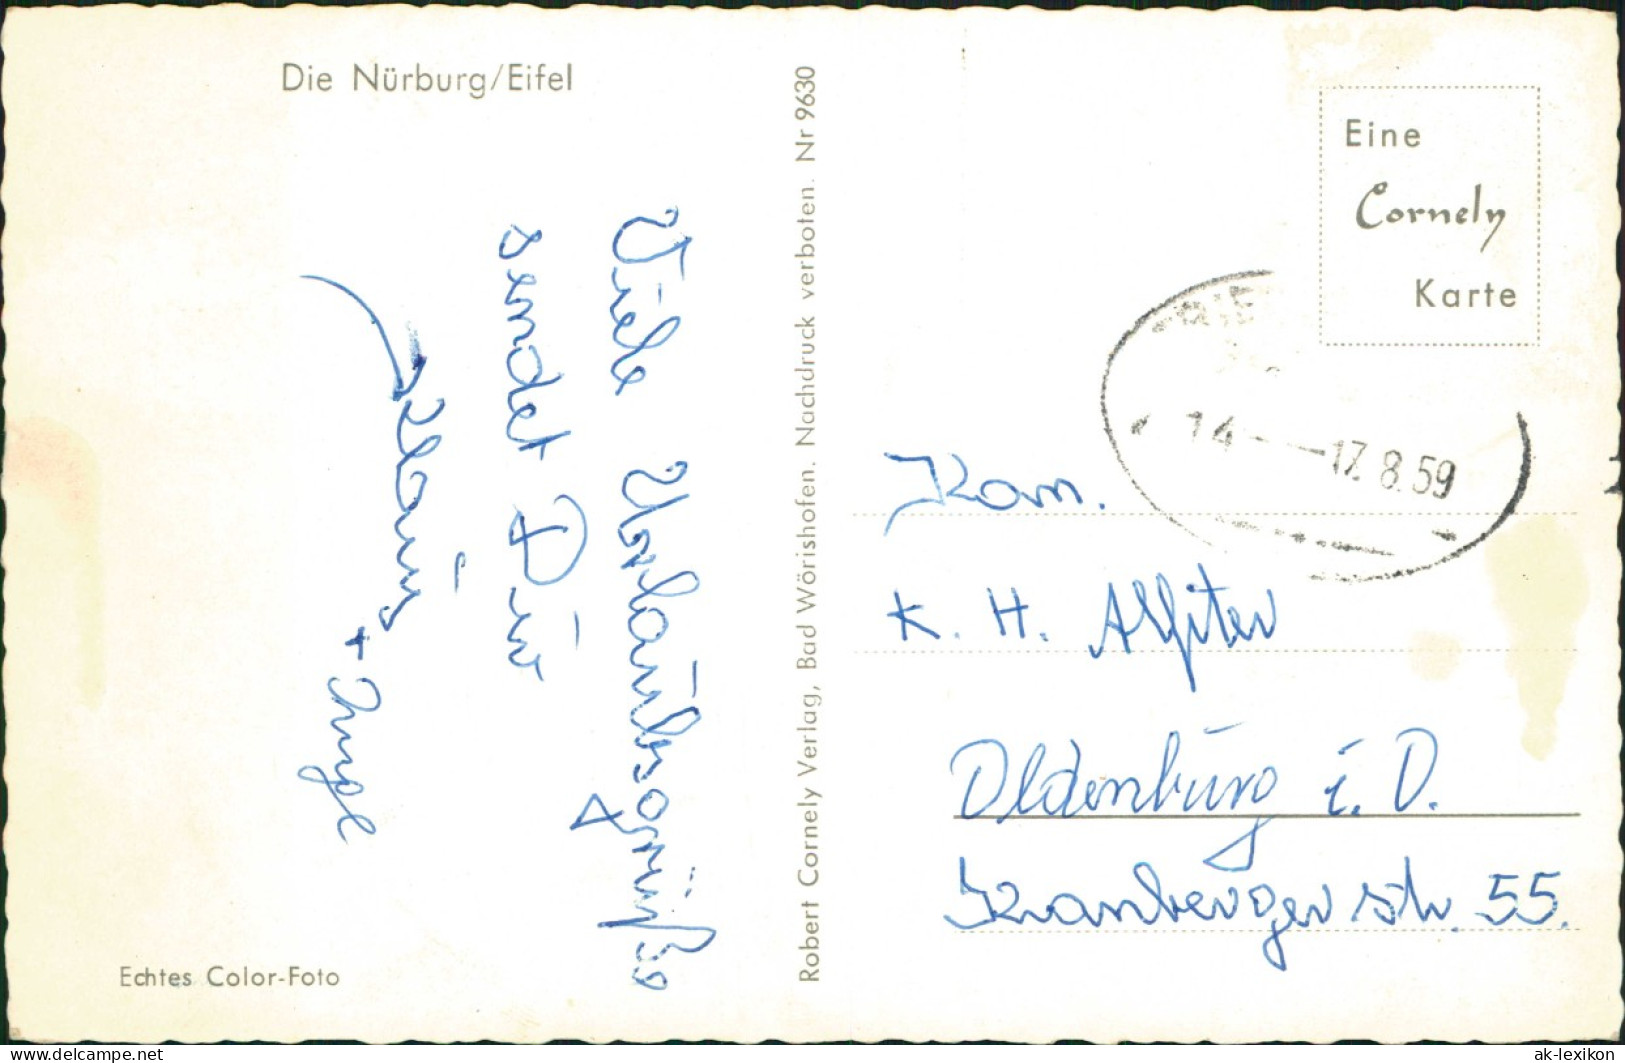 Die Nürburg/Eifel
Viele Urlaubsgrüße
sendet Dir
Klaus
+ Inge
Echtes Color-Foto
Robert Cornely Verlag, Bad Wörishofen. Nachdruck verboten. Nr 9630
Eine
Cornely
Karte
14 - -17.8.59
Kam.
K. H.
Oldenburg i. O.
str. 55.
www.delcampe.net
ak-lexikon